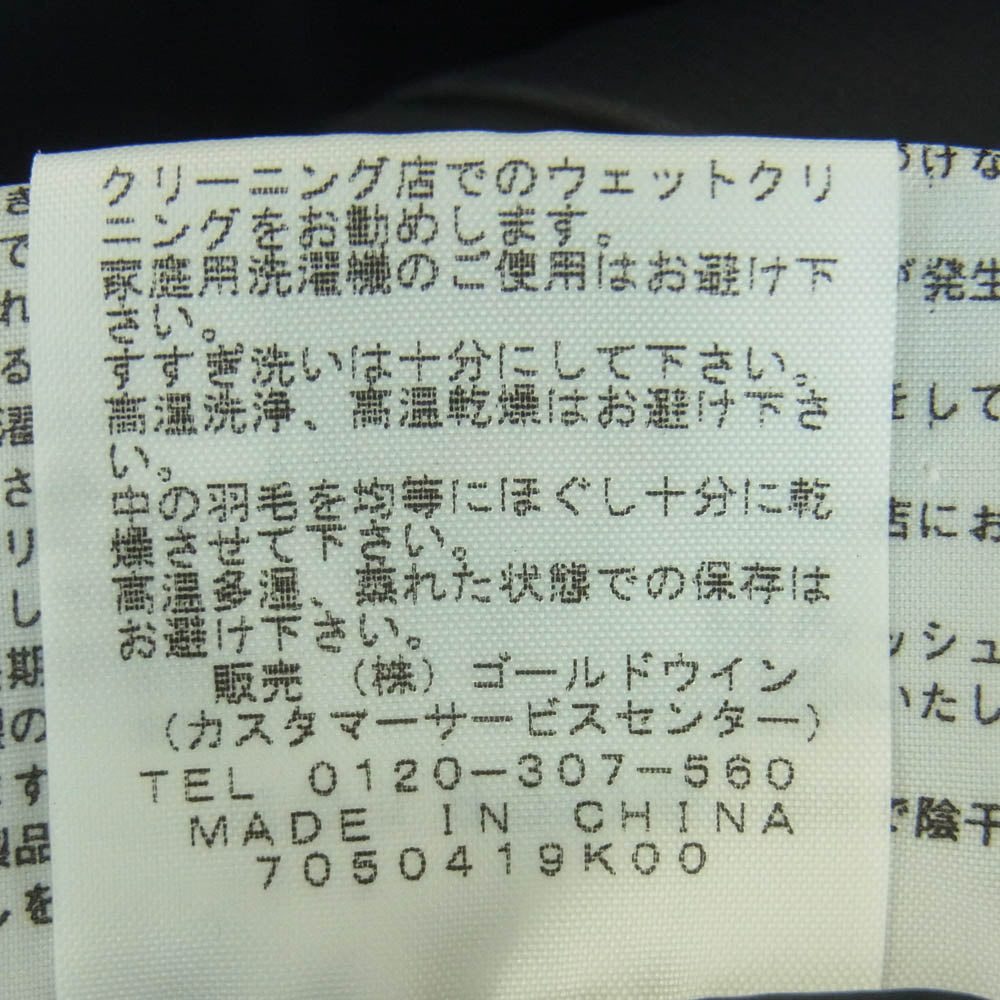 クリーニング店でのウェットクリ
ニングをお勧めします。
家庭用洗濯機のご使用はお避け下
さい。
すすぎ洗いは十分にして下さい。
高温洗浄、高温乾燥はお避け下さ
い。
中の羽毛を均等にほぐし十分に乾
燥させて下さい。
高温多湿、蒸れた状態での保存は
お避け下さい。
販売 (株) ゴールドウイン
(カスタマーサービスセンター)
TEL 0120-307-560
MADE IN CHINA
7050419K00
けな
き
で
れ
が発生
る
濯
をして
さ
リ
店にお
し
期
ッシュ
の
いたし
ます
製品
で陰干
しを